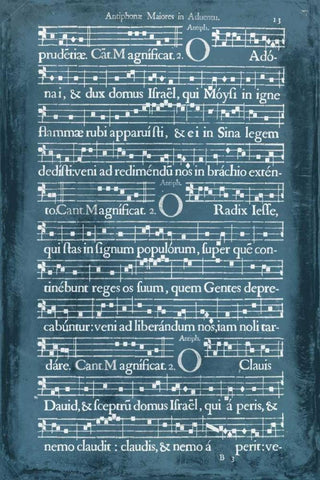 Antiphonæ Maiores in Aduentu. 13
Antiph.
prudétiæ. Cāt. Magníficat. 2. O Adó-
nai, & dux domus Iſraël, qui Móyſi in igne
flammæ rubi apparuíſti, & ei in Sina legem
dedíſti: veni ad rediméndū nos in bráchio extén-
Antiph.
to. Cant. Magníficat. 2. O Radix Ieſſe,
qui ſtas in ſignum populórum, ſuper quē con-
tinébunt reges os ſuum, quem Gentes depre-
cabúntur: veni ad liberándum nos, iam noli tar-
Antiph.
dáre. Cant. Magníficat. 2. O Clauis
Dauid, & ſceptrū domus Iſraël, qui áperis, &
nemo claudit : claudis, & nemo áperit: ve-
B 3